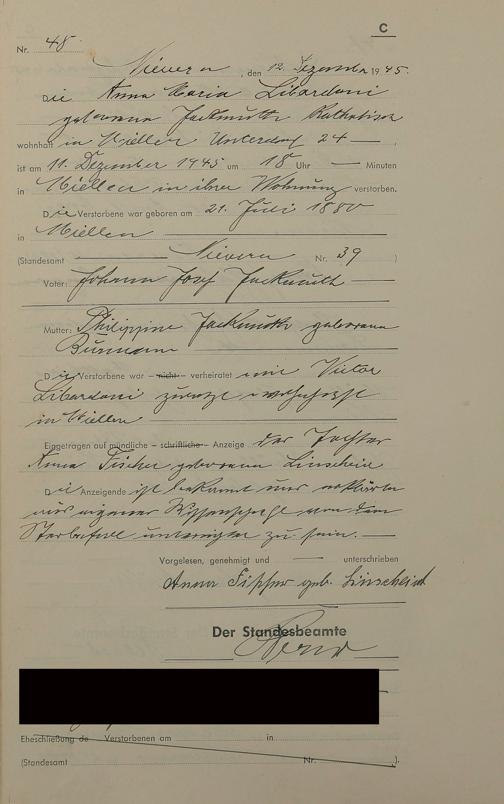 C
Nr. 48
Nievern, den 12. Dezember 1945.
Die Anna Maria Libardoni
geborene Jackmuth Katholisch
wohnhaft in Miellen Unterdorf 24 —,
ist am 11. Dezember 1945 um 18 Uhr — Minuten
in Miellen in ihrer Wohnung verstorben.
Die Verstorbene war geboren am 21. Juli 1880
in Miellen
(Standesamt Nievern Nr. 39)
Vater: Johann Josef Jackmuth —
Mutter: Philippine Jackmuth geborene
Die Verstorbene war – nicht – verheiratet mit Victor
Libardoni zuletzt wohnhaft
in Miellen
Eingetragen auf mündliche – schriftliche – Anzeige der Tochter
Anna Fischer geborene Linscheid
Die Anzeigende ist bekannt und erklärte
aus eigener Wissenschaft von dem
Sterbefall unterrichtet zu sein. —
Vorgelesen, genehmigt und — unterschrieben
Anna Fischer geb. Linscheid
Der Standesbeamte
Eheschließung de Verstorbenen am in
(Standesamt Nr. ).